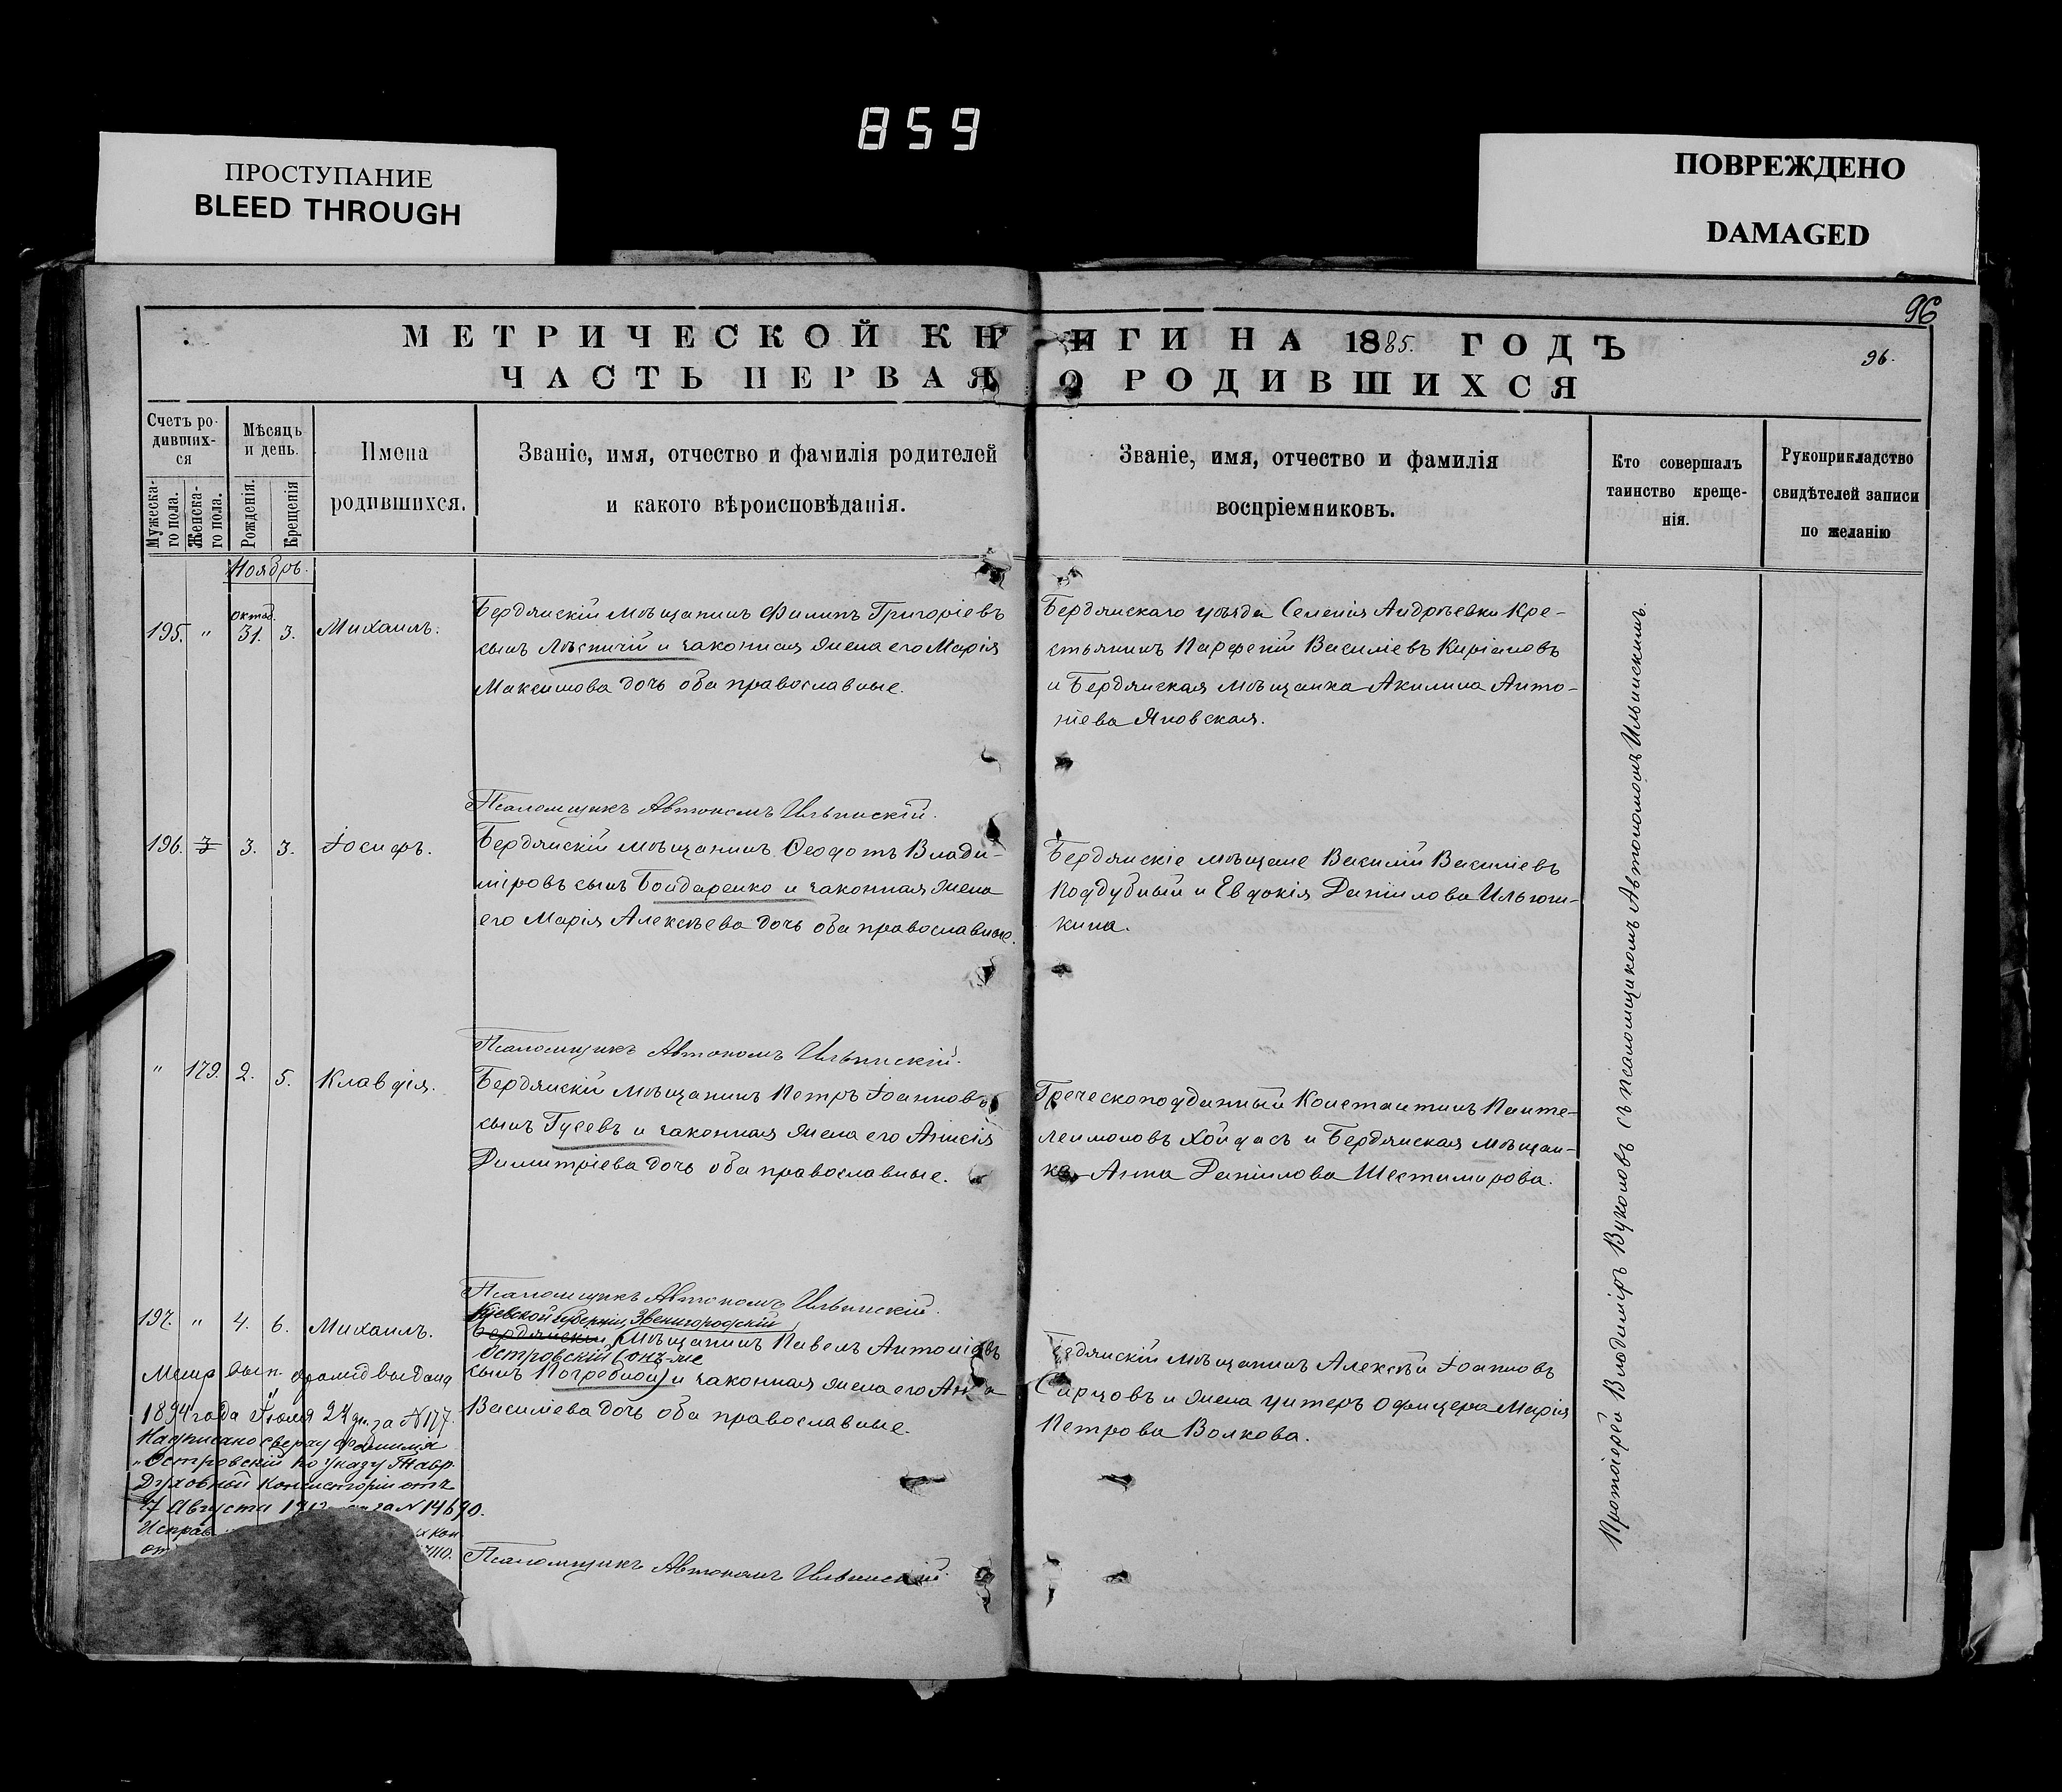 859
ПРОСТУПАНИЕ
BLEED THROUGH
ПОВРЕЖДЕНО
DAMAGED
96
МЕТРИЧЕСКОЙ КНИГИ НА 1885. ГОДЪ
96.
ЧАСТЬ ПЕРВАЯ О РОДИВШИХСЯ
Счетъ ро-
дивших-
ся
Мужеска-
го пола.
Женска-
го пола.
Мѣсяцъ
и день.
Рожденія.
Крещенія
Имена
родившихся.
Званіе, имя, отчество и фамилія родителей
и какого вѣроисповѣданія.
Званіе, имя, отчество и фамилія
воспріемниковъ.
Кто совершалъ
таинство креще-
нія.
Рукоприкладство
свидѣтелей записи
по желанію
Ноябрь.
195. " Октяб. 31. 3. Михаилъ.
Бердянскій мѣщанинъ Филипъ Григоріевъ
сынъ Лѣсничій и законная жена его Марія
Максимова дочь оба православные.
Бердянскаго уѣзда Селенія Андрѣевки Кре-
стьянинъ Парфеній Василіевъ Киріановъ
и Бердянская мѣщанка Акилина Анто-
ніева Яновская.
Псаломщикъ Автономъ Ильинскій.
196. 3. 3. Іосифъ.
Бердянскій мѣщанинъ Ѳеодотъ Влади-
міровъ сынъ Бондаренко и законная жена
его Марія Алексѣева дочь оба православные.
Бердянскіе мѣщане Василій Василіевъ
Поддубный и Евдокія Даніилова Ильюш-
кина.
Псаломщикъ Автономъ Ильинскій.
" 179. 2. 5. Клавдія.
Бердянскій мѣщанинъ Петръ Іоанновъ
сынъ Гусевъ и законная жена его Анисія
Димитріева дочь оба православные.
Греческоподданный Константинъ Панте-
леимоновъ Хойдасъ и Бердянская мѣщан-
ка Анна Даніилова Шестимирова.
Псаломщикъ Автономъ Ильинскій.
197. " 4. 6. Михаилъ.
Кіевской губерніи, Звенигородскій
Бердянскій мѣщанинъ Павелъ Антоніевъ
Островскій (онъ-же
сынъ Погребной) и законная жена его Анна
Василіева дочь оба православные.
Бердянскій мѣщанинъ Алексѣй Іоанновъ
Сирцовъ и жена унтеръ офицера Марія
Петрова Волкова.
Метр вып. выдана
1894 года Іюля 27 дн. за N 177.
Надписано сверху фамилія
"Островскій по указу Тавр.
Духовной Консисторіи отъ
7 Августа за N 14690.
Исправ
110.
Псаломщикъ Автономъ Ильинскій.
Протоіерей Владиміръ Вуколовъ съ псаломщикомъ Автономомъ Ильинскимъ.